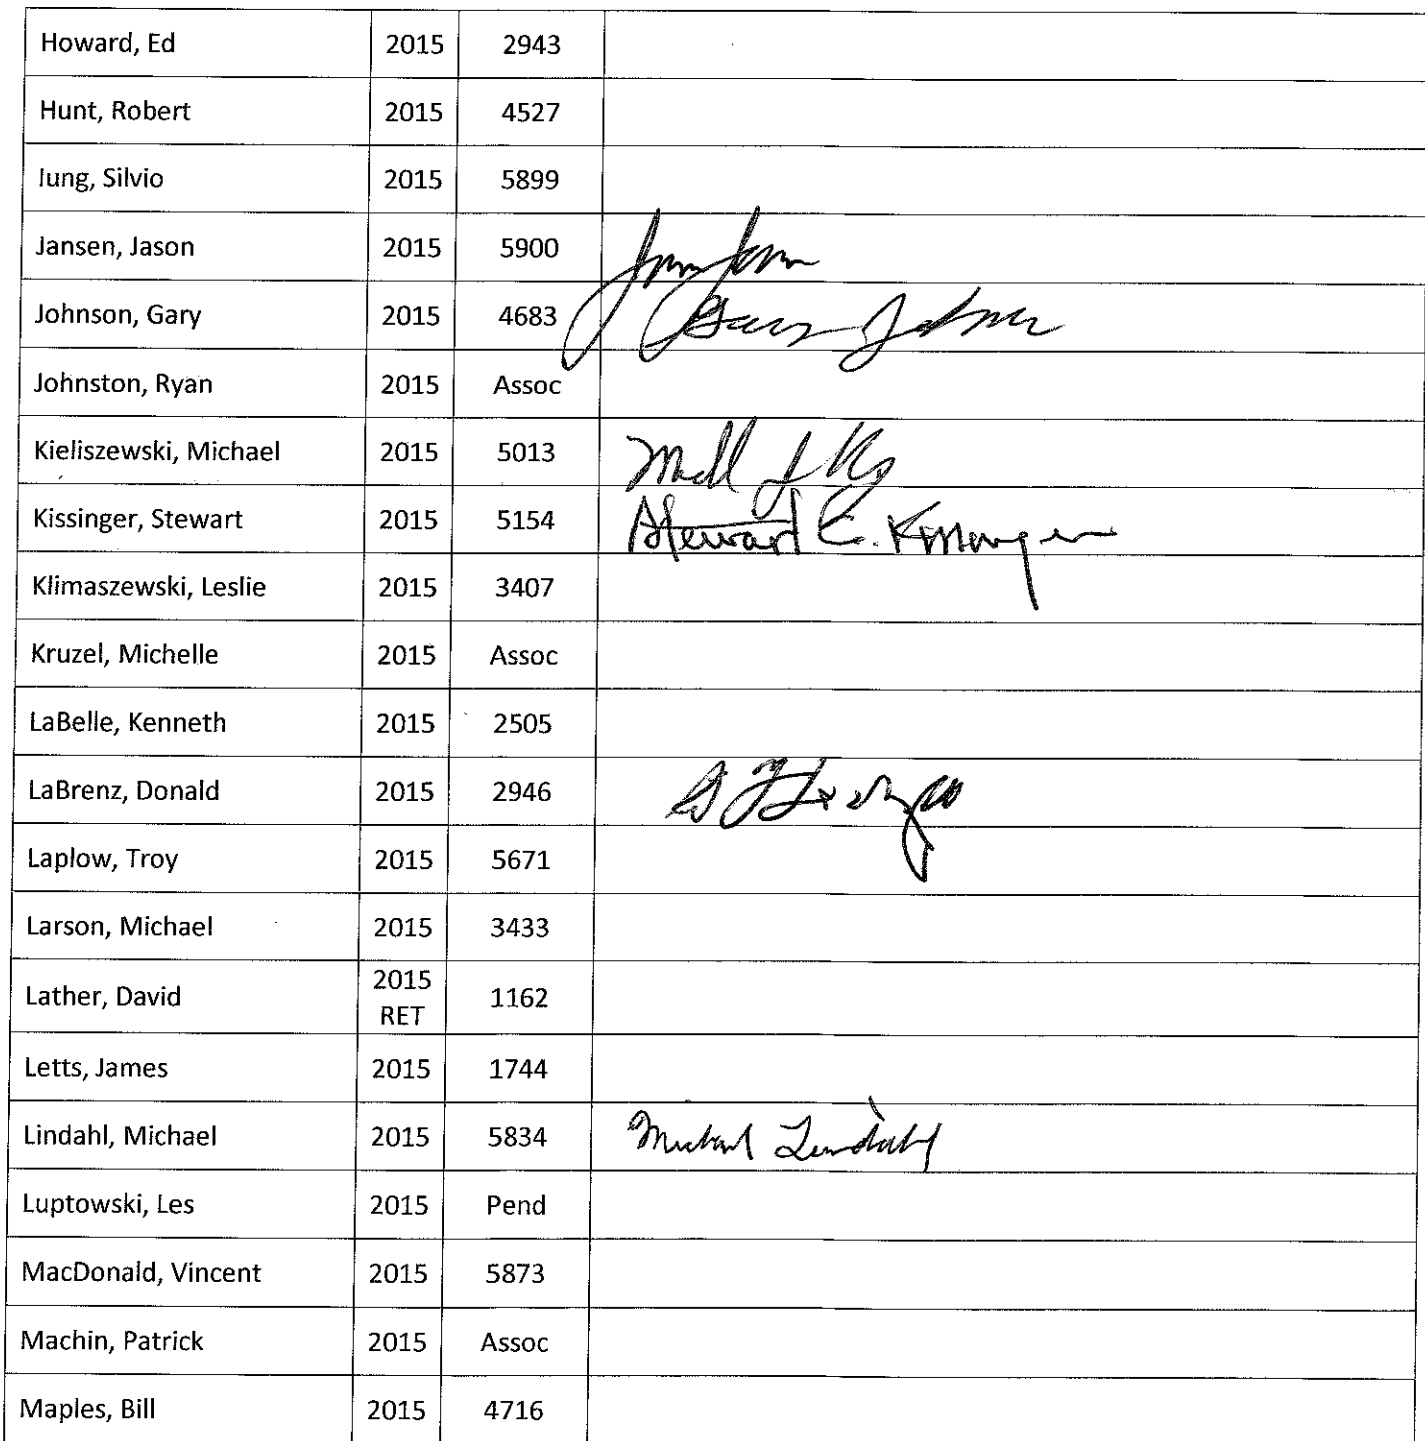 Howard, Ed 2015 2943
Hunt, Robert 2015 4527
Iung, Silvio 2015 5899
Jansen, Jason 2015 5900
Johnson, Gary 2015 4683 Gary Johnson
Johnston, Ryan 2015 Assoc
Kieliszewski, Michael 2015 5013
Kissinger, Stewart 2015 5154 Stewart E. Kissinger
Klimaszewski, Leslie 2015 3407
Kruzel, Michelle 2015 Assoc
LaBelle, Kenneth 2015 2505
LaBrenz, Donald 2015 2946
Laplow, Troy 2015 5671
Larson, Michael 2015 3433
Lather, David 2015 RET 1162
Letts, James 2015 1744
Lindahl, Michael 2015 5834 Michael Lindahl
Luptowski, Les 2015 Pend
MacDonald, Vincent 2015 5873
Machin, Patrick 2015 Assoc
Maples, Bill 2015 4716